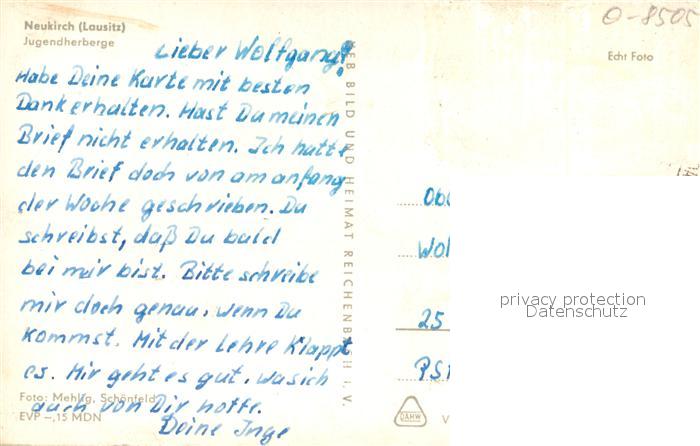 Neukirch (Lausitz)
Jugendherberge
O-8505
Echt Foto
Lieber Wolfgang!
Habe Deine Karte mit besten
Dank erhalten. Hast Du meinen
Brief nicht erhalten. Ich hatte
den Brief doch von am anfang
der Woche geschrieben. Du
schreibst, daß Du bald
bei mir bist. Bitte schreibe
mir doch genau, wenn Du
kommst. Mit der Lehre klappt
es. Mir geht es gut, was ich
auch von Dir hoffe.
Deine Inge
Foto: Mehlig, Schönfeld
EVP -,15 MDN
VEB BILD UND HEIMAT REICHENBACH i. V.
Obe
Wol
25
PSF
DAHW
V
privacy protection
Datenschutz